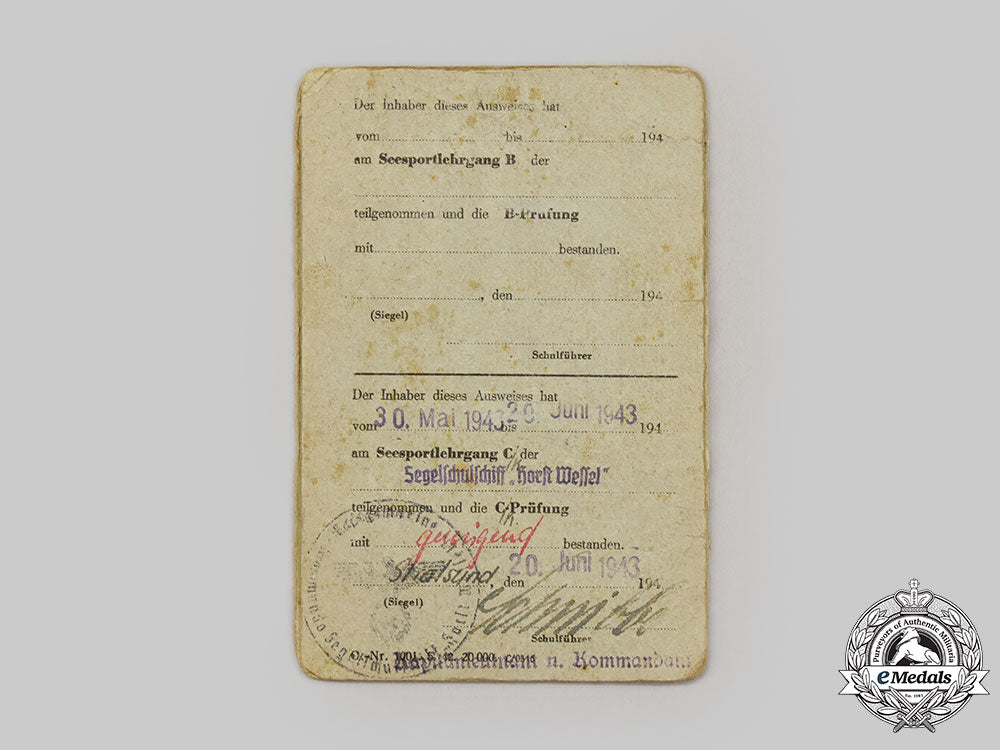 Der Inhaber dieses Ausweises hat
vom bis 194
am Seesportlehrgang B der
teilgenommen und die B-Prüfung
mit bestanden.
, den 194
(Siegel)
Schulführer
Der Inhaber dieses Ausweises hat
vom 30. Mai 1943 bis 20. Juni 1943 194
am Seesportlehrgang C der
Segelschulschiff „Horst Wessel"
teilgenommen und die C-Prüfung
mit genügend bestanden.
Stralsund, den 20. Juni 1943 194
(Siegel)
Schulführer
O.-Nr. 20 000
Kapitänleutnant u. Kommandant
Purveyors of Authentic Militaria
eMedals